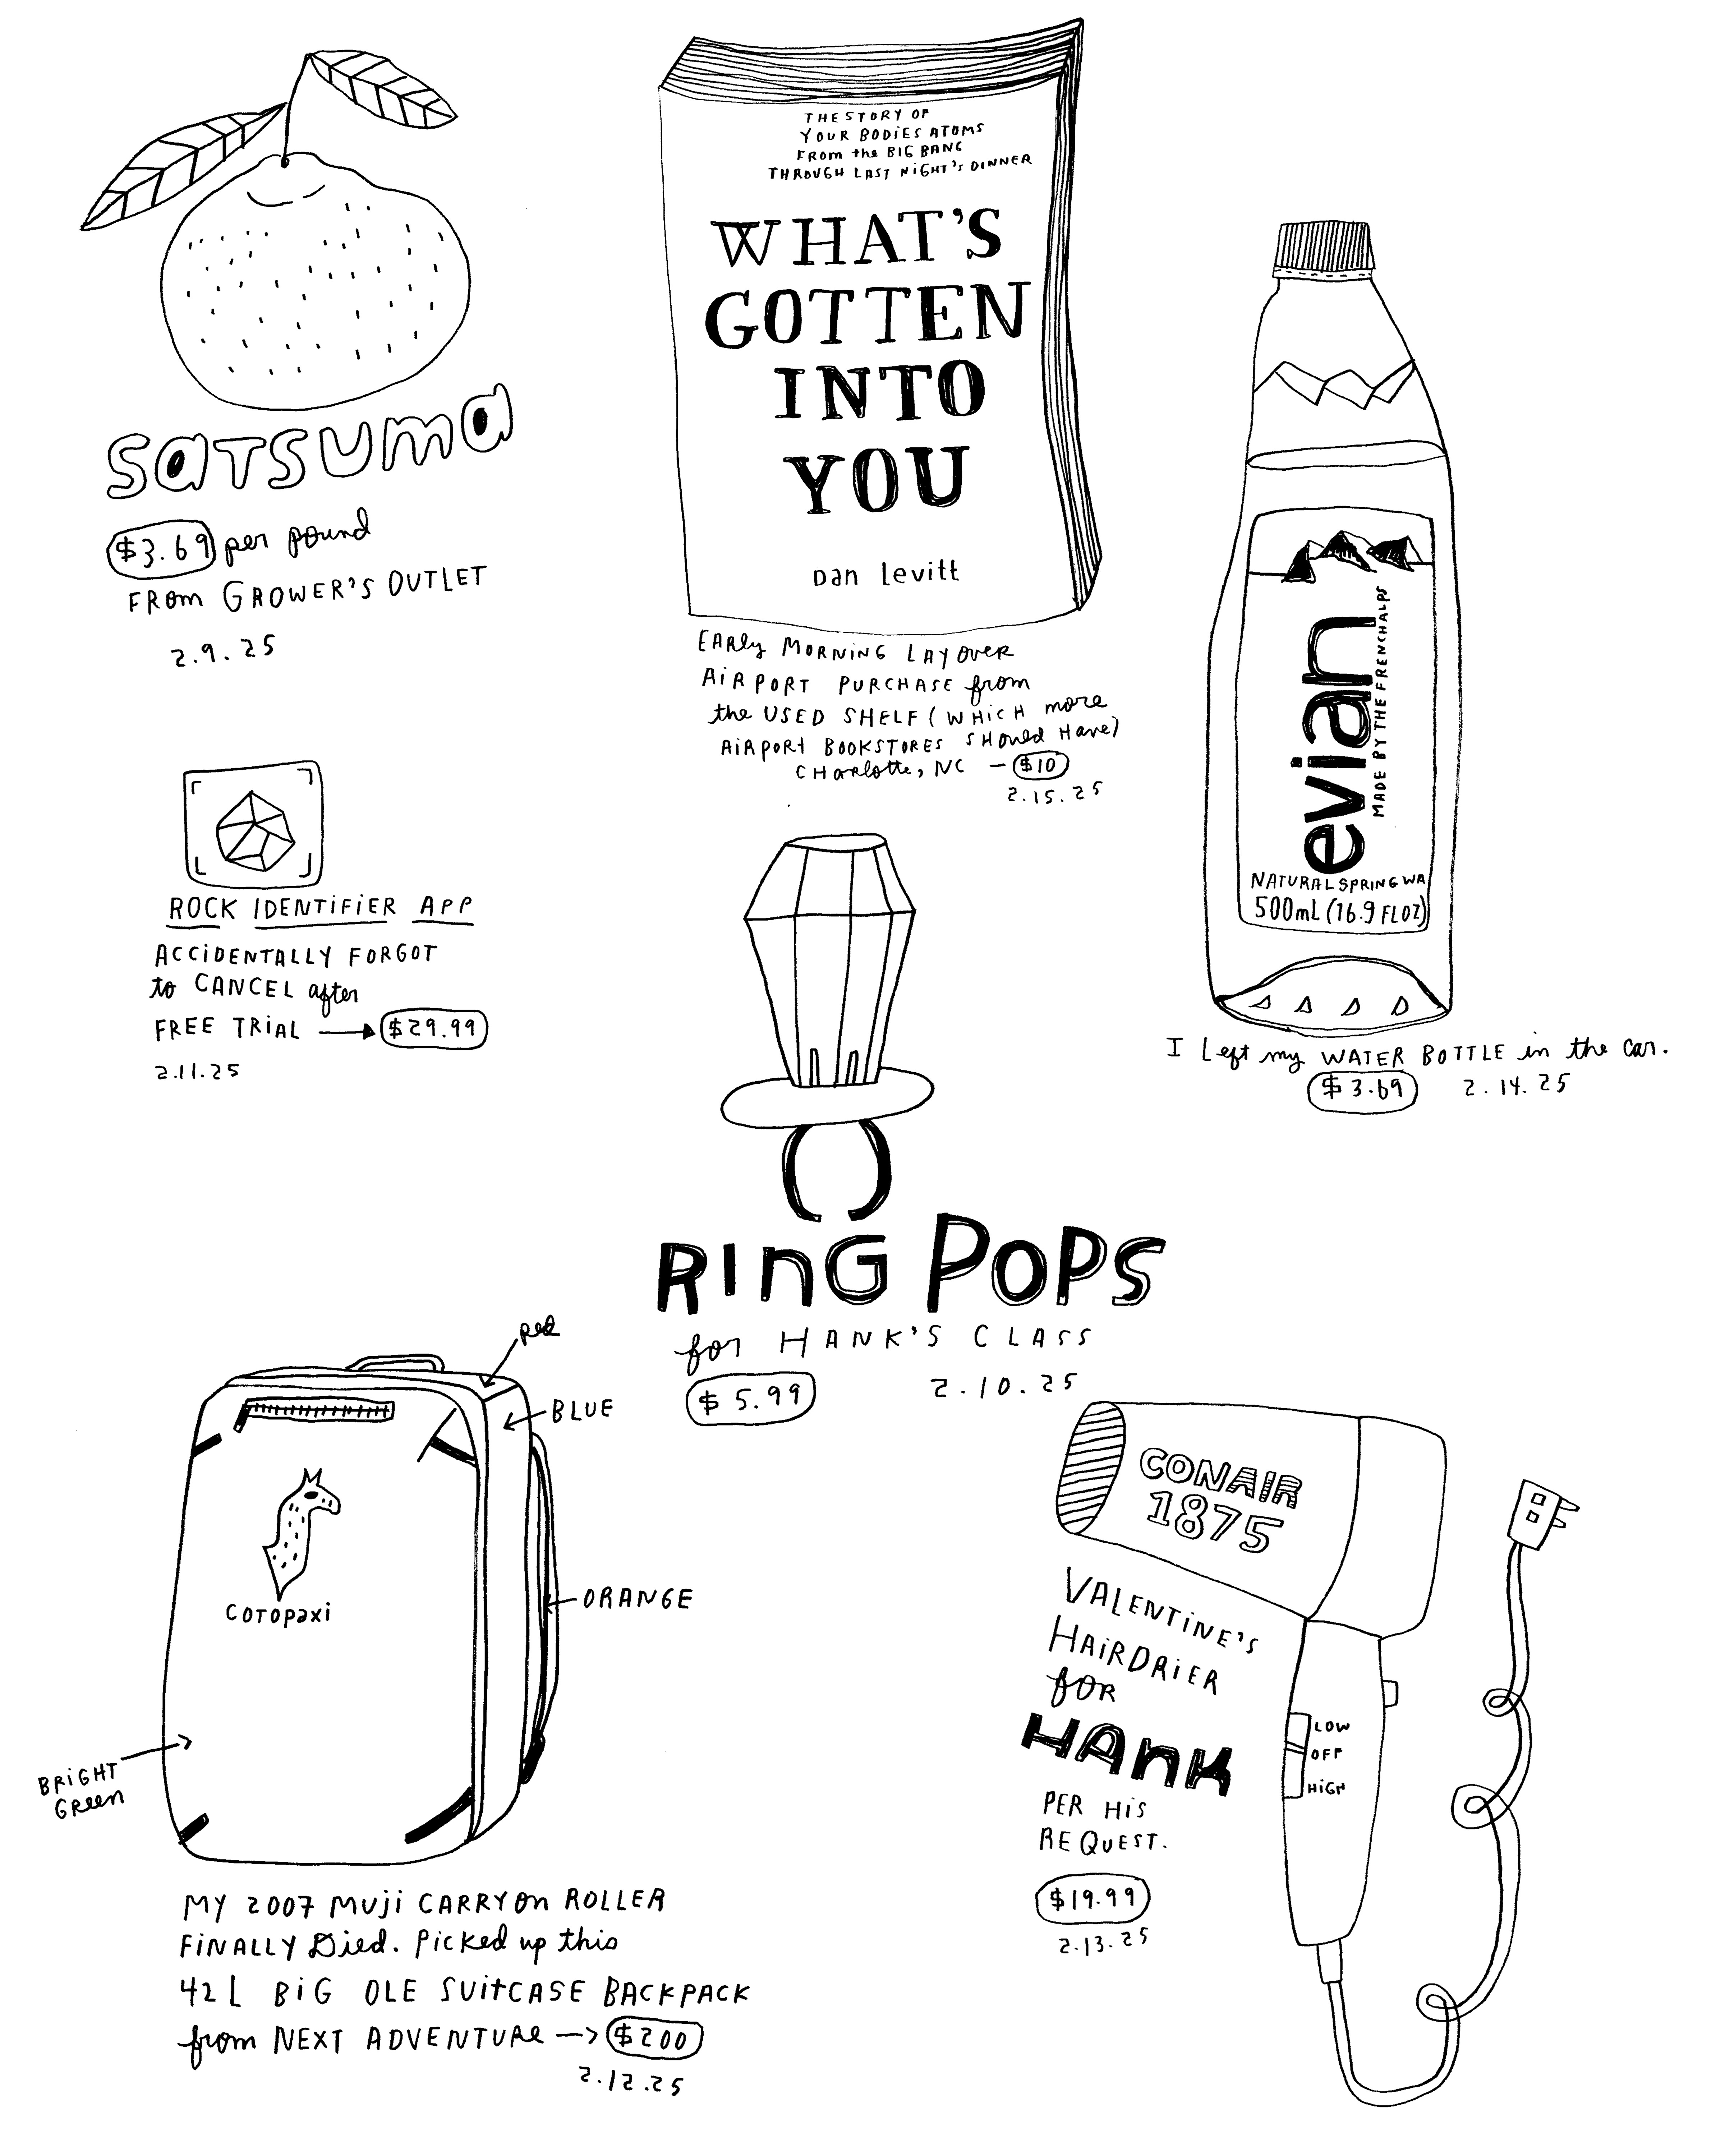 SATSUMA
$3.69 per pound
FROM GROWER'S OUTLET
2.9.25
THE STORY OF
YOUR BODIES ATOMS
FROM the BIG BANG
THROUGH LAST NIGHT'S DINNER
WHAT'S
GOTTEN
INTO
YOU
Dan Levitt
EARLY MORNING LAYOVER
AIRPORT PURCHASE from
the USED SHELF (WHICH more
AIRPORT BOOKSTORES SHOULD HAVE)
CHARLOTTE, NC — $10
2.15.25
evian
MADE BY THE FRENCH ALPS
NATURAL SPRING WA
500mL (16.9 FL OZ)
I Left my WATER BOTTLE in the car.
$3.69 2.14.25
ROCK IDENTIFIER APP
ACCIDENTALLY FORGOT
to CANCEL after
FREE TRIAL → $29.99
2.11.25
RING POPS
for HANK'S CLASS
$5.99 2.10.25
Red
BLUE
COTOPAXI
ORANGE
BRIGHT
GREEN
MY 2007 MUJI CARRYON ROLLER
FINALLY Died. Picked up this
42L BIG OLE SUITCASE BACKPACK
from NEXT ADVENTURE → $200
2.12.25
CONAIR
1875
VALENTINE'S
HAIRDRIER
FOR
HANK
PER HIS
REQUEST.
$19.99
2.13.25
LOW
OFF
HIGH